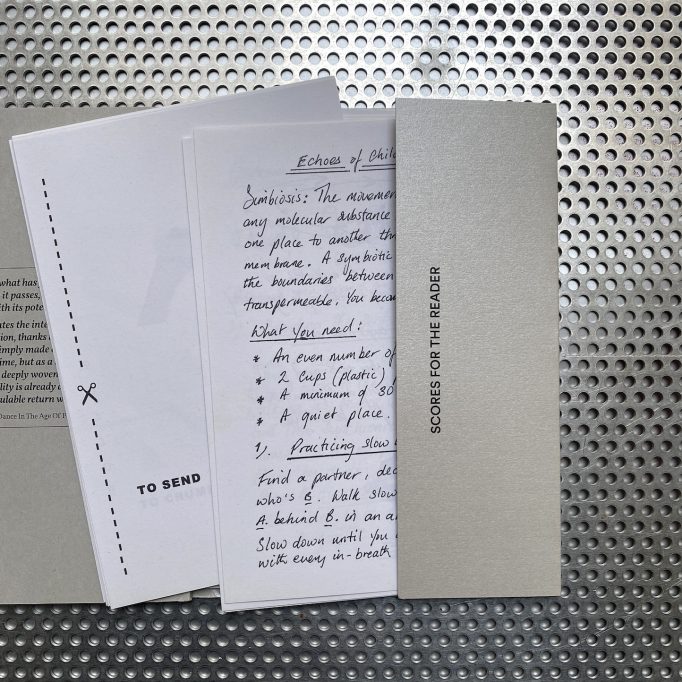 what has
it passes,
with its pote
ates the inte
tion, thanks
imply made
ime, but as a
deeply woven
lity is already
ulable return w
Dance In The Age Of
TO SEND
TO CRUM
Echoes of Chil
Simbiosis: The movemen
any molecular substance
one place to another th
membrane. A symbiotic
the boundaries between
transpermeable. You beca
What you need:
* An even number of
* 2 Cups (plastic)
* A minimum of 30
* A quiet place.
1). Practicing slow
Find a partner, dec
who's B. Walk slow
A. behind B. in an a
Slow down until you
with every in-breath
SCORES FOR THE READER